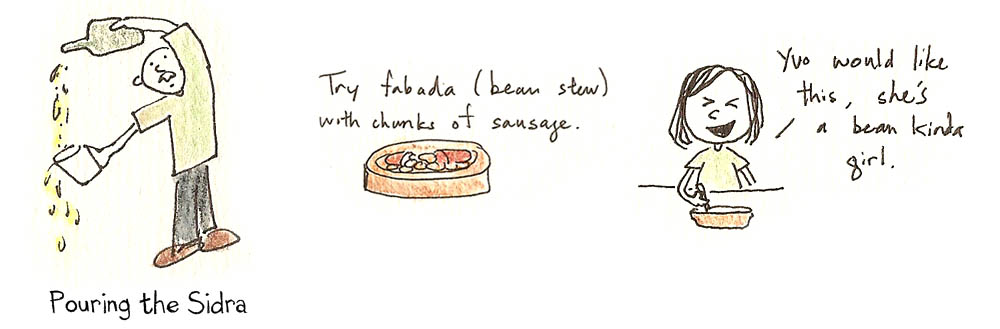 Pouring the Sidra
Try fabada (bean stew)
with chunks of sausage.
Yvo would like
this, she's
a bean kinda
girl.